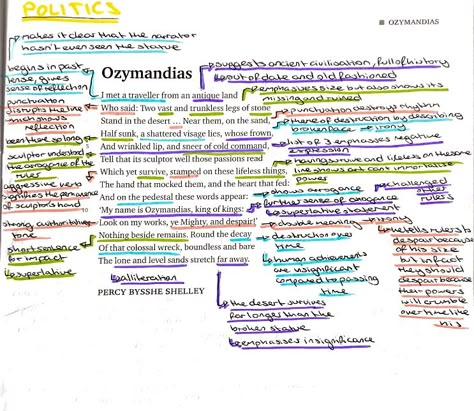 POLITICS
OZYMANDIAS
makes it clear that the narrator
hasn't even seen the statue
begins in past
tense, gives
sense of reflection
punctuation
disrupts the line
which shows
reflection
been there so long
sculptor understood
the arrogance of the
ruler
aggressive verb
the permanence
of sculptor's hand
strong authoritative
tone
short sentence
for impact
superlative
Ozymandias
I met a traveller from an antique land
Who said: Two vast and trunkless legs of stone
Stand in the desert ... Near them, on the sand,
Half sunk, a shattered visage lies, whose frown,
And wrinkled lip, and sneer of cold command,
Tell that its sculptor well those passions read
Which yet survive, stamped on these lifeless things,
The hand that mocked them, and the heart that fed:
And on the pedestal these words appear:
10
'My name is Ozymandias, king of kings:
Look on my works, ye Mighty, and despair!'
Nothing beside remains. Round the decay
Of that colossal wreck, boundless and bare
The lone and level sands stretch far away.
alliteration
PERCY BYSSHE SHELLEY
suggests ancient civilisation, full of history
out of date and old fashioned
emphasises size but also shows its
missing and ruined
punctuation destroys rhythm
theme of destruction by describing
broken face + irony
list of 3 emphasises negative
expression
having survive and lifeless on the same
line shows art can
power
shows arrogance
challenged
other
rulers
further sense of arrogance
superlative statement
double meaning + irony
destruction over
time
human achievements
are insignificant
compared to passing
time
he tells rulers to
despair because
of his size
but in fact
they should
despair because
their powers
will crumble
over time like
his
the desert survives
far longer than the
broken statue
emphasises insignificance